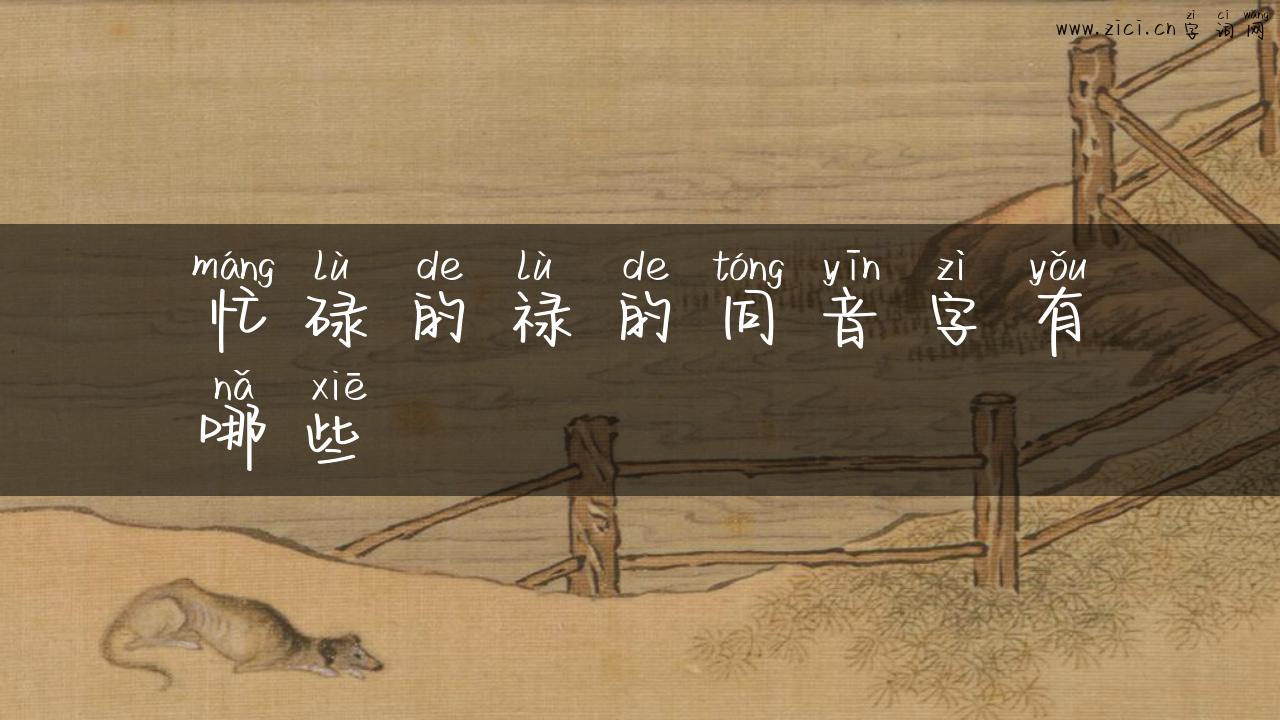 zì cí wǎng
www.zici.cn 字词网
máng lù de lù de tóng yīn zì yǒu
忙碌的禄的同音字有
nǎ xiē
哪些